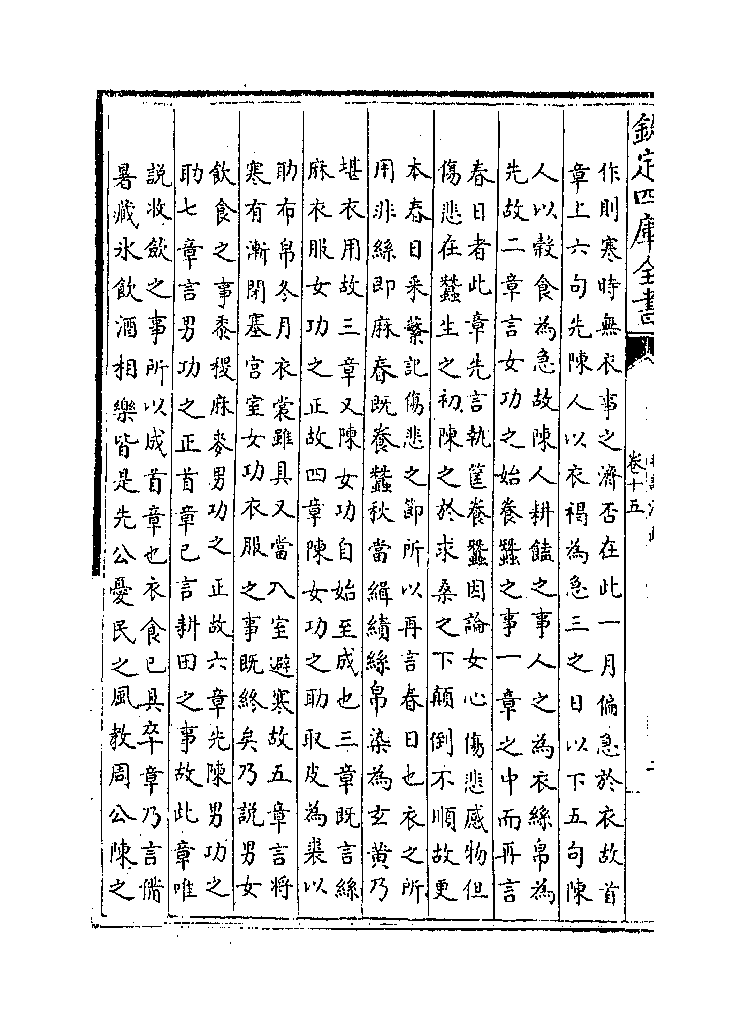 欽定四庫全書
卷十五
作則寒時無衣事之濟否在此一月偏急於衣故首
章上六句先陳人以衣褐為急三之日以下五句陳
人以穀食為急故陳人耕饁之事人之為衣絲帛為
先故二章言女功之始養蠶之事一章之中而再言
春日者此章先言執筐養蠶因論女心傷悲感物但
傷悲在蠶生之初陳之於求桑之下顛倒不順故更
本春日采蘩記傷悲之節所以再言春日也衣之所
用非絲即麻春既養蠶秋當緝績絲帛染為玄黃乃
堪衣用故三章又陳女功自始至成也三章既言絲
麻衣服女功之正故四章陳女功之助取皮為裘以
助布帛冬月衣裳雖具又當入室避寒故五章言將
寒有漸閉塞宮室女功衣服之事既終矣乃說男女
飲食之事黍稷麻麥男功之正故六章先陳男功之
助七章言男功之正首章已言耕田之事故此章唯
說收斂之事所以成首章也衣食已具卒章乃言備
暑藏氷飲酒相樂皆是先公憂民之風教周公陳之